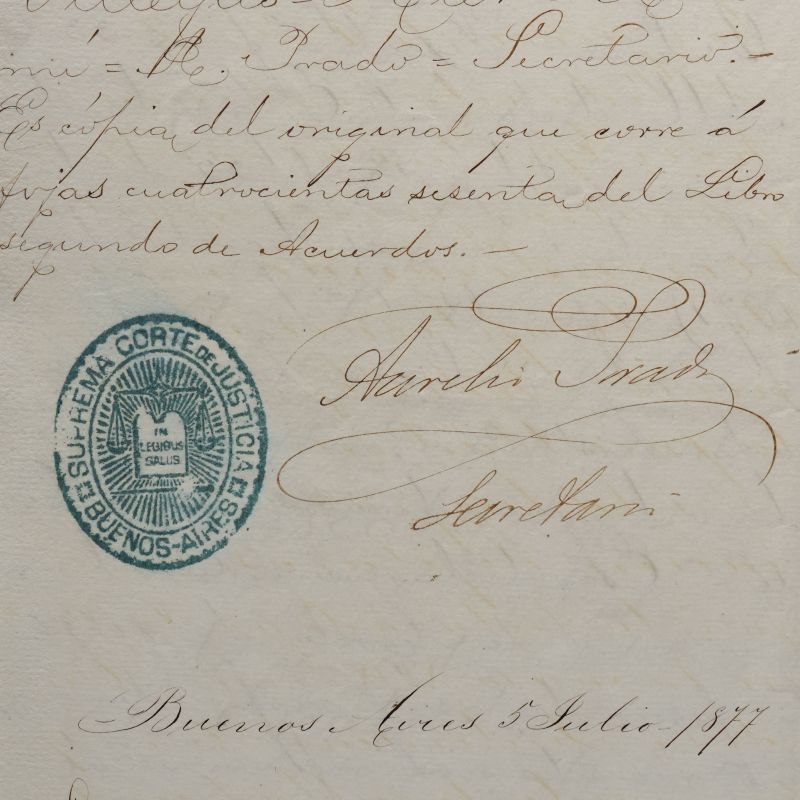 mí = A. Prado = Secretario. -
Es cópia del original que corre á
fojas cuatrocientas sesenta del Libro
segundo de Acuerdos. -
Aurelio Prado
Secretario
SUPREMA CORTE DE JUSTICIA
IN
LEGIBUS
SALUS
BUENOS-AIRES
Buenos Aires 5 Julio - 1877